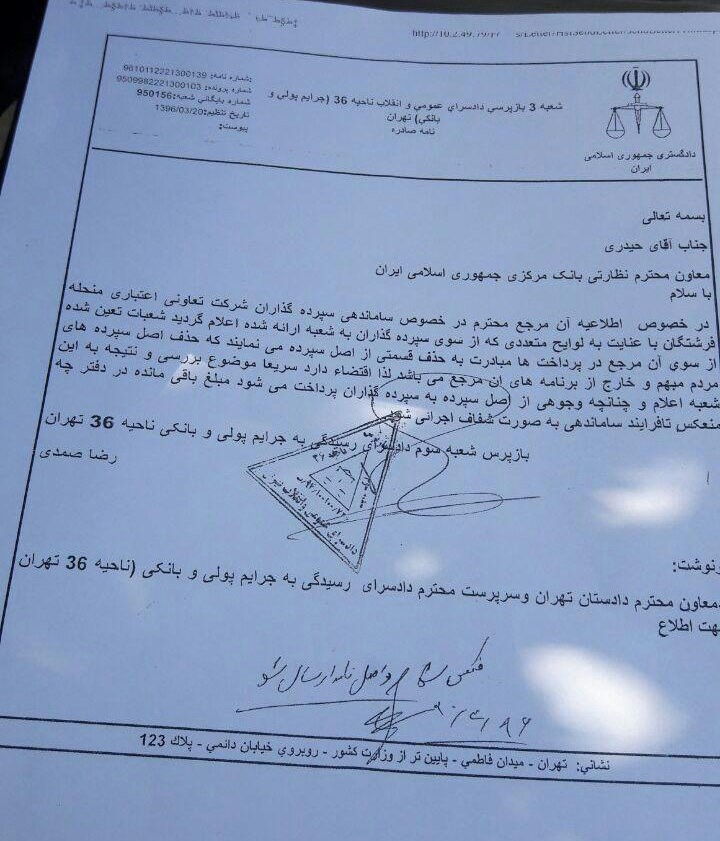 http://10.2.49.79/Pr
شماره نامه: 9610112221300139
شماره پرونده: 9509982221300103
شماره بایگانی شعبه: 950156
تاریخ تنظیم: 1396/03/20
پیوست:
شعبه 3 بازپرسي دادسراي عمومي و انقلاب ناحيه 36 (جرایم پولی و
بانکی) تهران
نامه صادره
دادگستری جمهوری اسلامی
ایران
بسمه تعالی
جناب آقای حیدری
معاون محترم نظارتی بانک مرکزی جمهوری اسلامی ایران
با سلام
در خصوص اطلاعیه آن مرجع محترم در خصوص ساماندهی سپرده گذاران شرکت تعاونی اعتباری منحله
فرشتگان با عنایت به لوایح متعددی که از سوی سپرده گذاران به شعبه ارائه شده اعلام گردید شعبات تعین شده
از سوی آن مرجع در پرداخت ها مبادرت به حذف قسمتی از اصل سپرده می نمایند که حذف اصل سپرده های
مردم مبهم و خارج از برنامه های ان مرجع می باشد لذا اقتضاء دارد سریعا موضوع بررسی و نتیجه به این
شعبه اعلام و چنانچه وجوهی از اصل سپرده به سپرده گذاران پرداخت می شود مبلغ باقی مانده در دفتر چه
منعکس تافرایند ساماندهی به صورت شفاف اجرائی شود
بازپرس شعبه سوم دادسرای رسیدگی به جرایم پولی و بانکی ناحیه 36 تهران
رضا صمدی
رونوشت:
معاون محترم دادستان تهران وسرپرست محترم دادسرای رسیدگی به جرایم پولی و بانکی (ناحیه 36 تهران
جهت اطلاع
نشاني: تهران - ميدان فاطمي - پايين تر از وزارت کشور - روبروي خيابان دائمي - پلاك 123